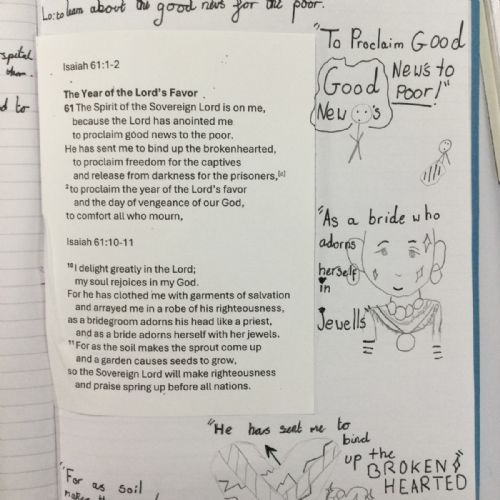 Lo: to learn about the good news for the poor.
Isaiah 61:1-2
The Year of the Lord's Favor
61 The Spirit of the Sovereign Lord is on me,
because the Lord has anointed me
to proclaim good news to the poor.
He has sent me to bind up the brokenhearted,
to proclaim freedom for the captives
and release from darkness for the prisoners,[a]
2 to proclaim the year of the Lord's favor
and the day of vengeance of our God,
to comfort all who mourn,
Isaiah 61:10-11
10 I delight greatly in the Lord;
my soul rejoices in my God.
For he has clothed me with garments of salvation
and arrayed me in a robe of his righteousness,
as a bridegroom adorns his head like a priest,
and as a bride adorns herself with her jewels.
11 For as the soil makes the sprout come up
and a garden causes seeds to grow,
so the Sovereign Lord will make righteousness
and praise spring up before all nations.
"To Proclaim Good
News to
Poor!"
Good
News
"As a bride who
adorns
herself
in
Jewells"
"He has sent me to
bind
up the
BROKEN
HEARTED
"For as soil